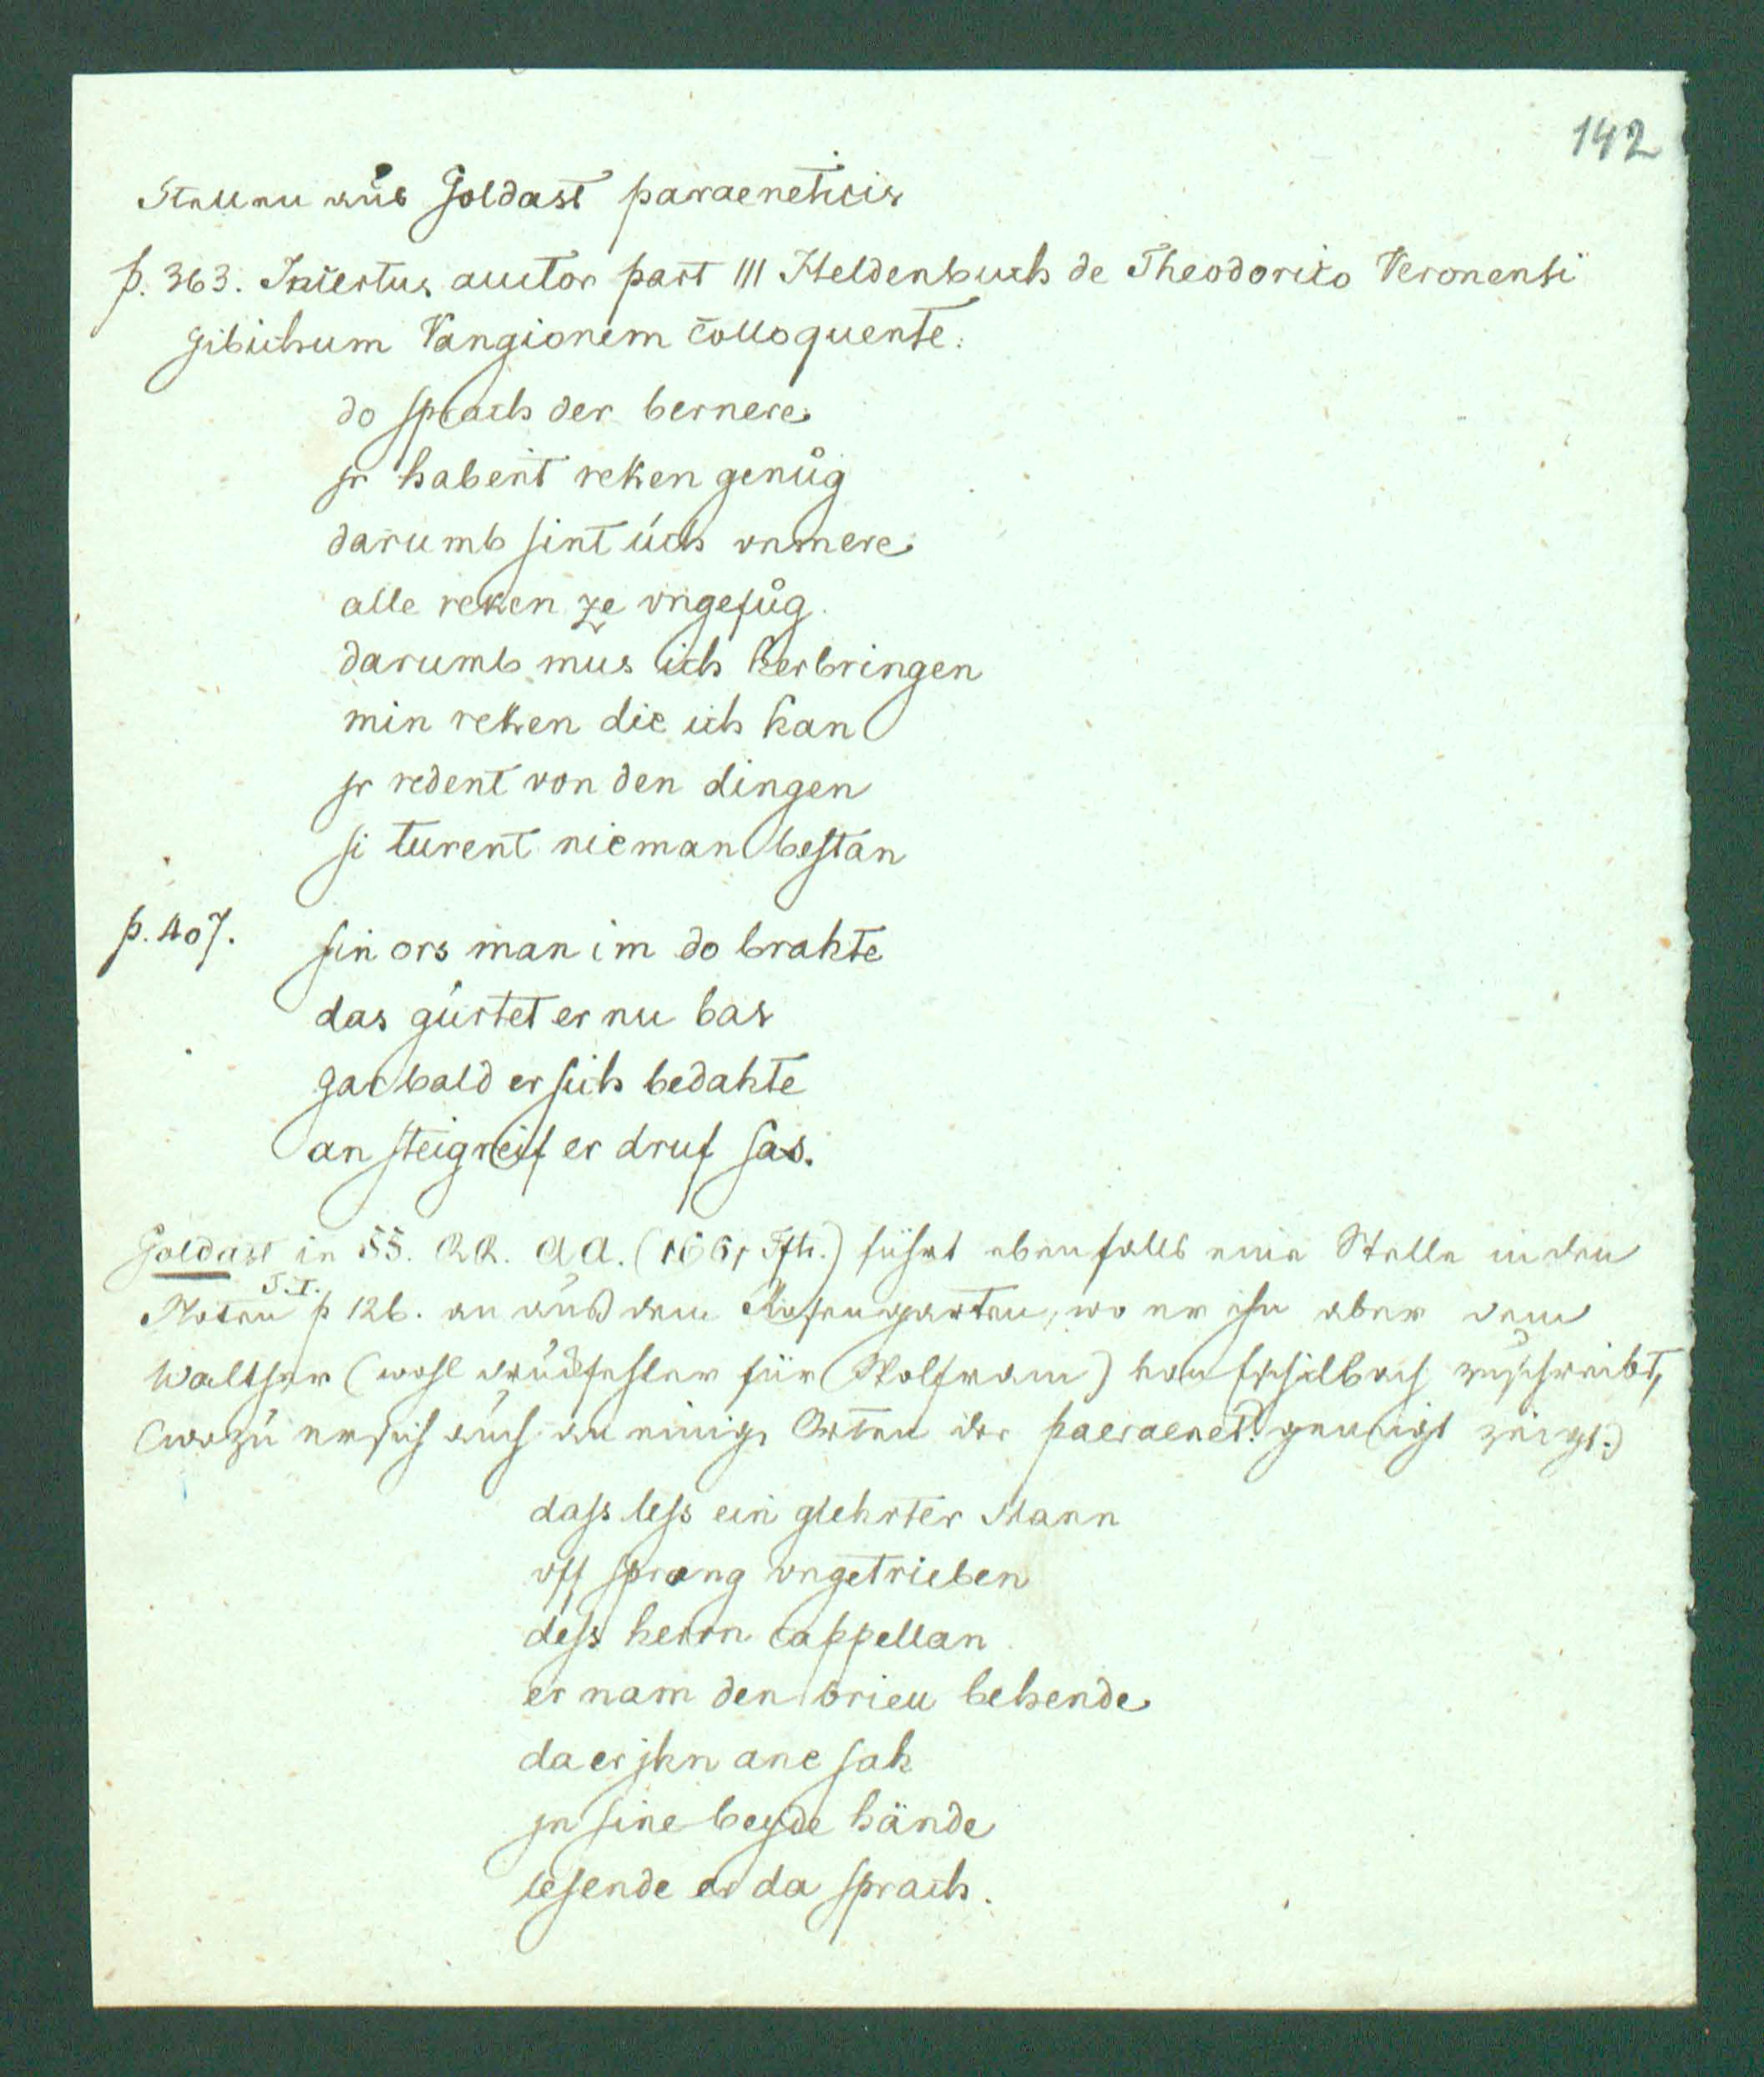 142
Stellen aus Goldast paraeneticis
p. 363. Incertus auctor part III Heldenbuch de Theodorico Veronensi
Gibichum Vangionem colloquente:
do sprach der bernere
jr habent reken genůg
darumb sint úch vnmere
alle reken ze vngefůg.
darumb mus ich herbringen
min reken die ich han
jr redent von den dingen
si turent nieman bestan
p. 407. sin ors man im do brahte
das gúrtet er nu bas
gar bald er sich bedahte
an steigreif er druf sas.
Goldast in SS. RR. AA. (1661 Fft.) führt ebenfalls eine Stelle in den
Noten T.I. p 126. an aus dem Rosengarten, wo er ihn aber dem
Walther (wohl druckfehler für Wolfram) von Eschilbach zuschreibt,
(wozu er sich auch an einigen Orten der paeraenet. geneigt zeigt.)
dass less ein glehrter Mann
vff sprang vngetrieben
dess herrn cappellan
er nam den brieu behende
da er jhn ane sah
jn sine beyde hände
lesende er da sprach.